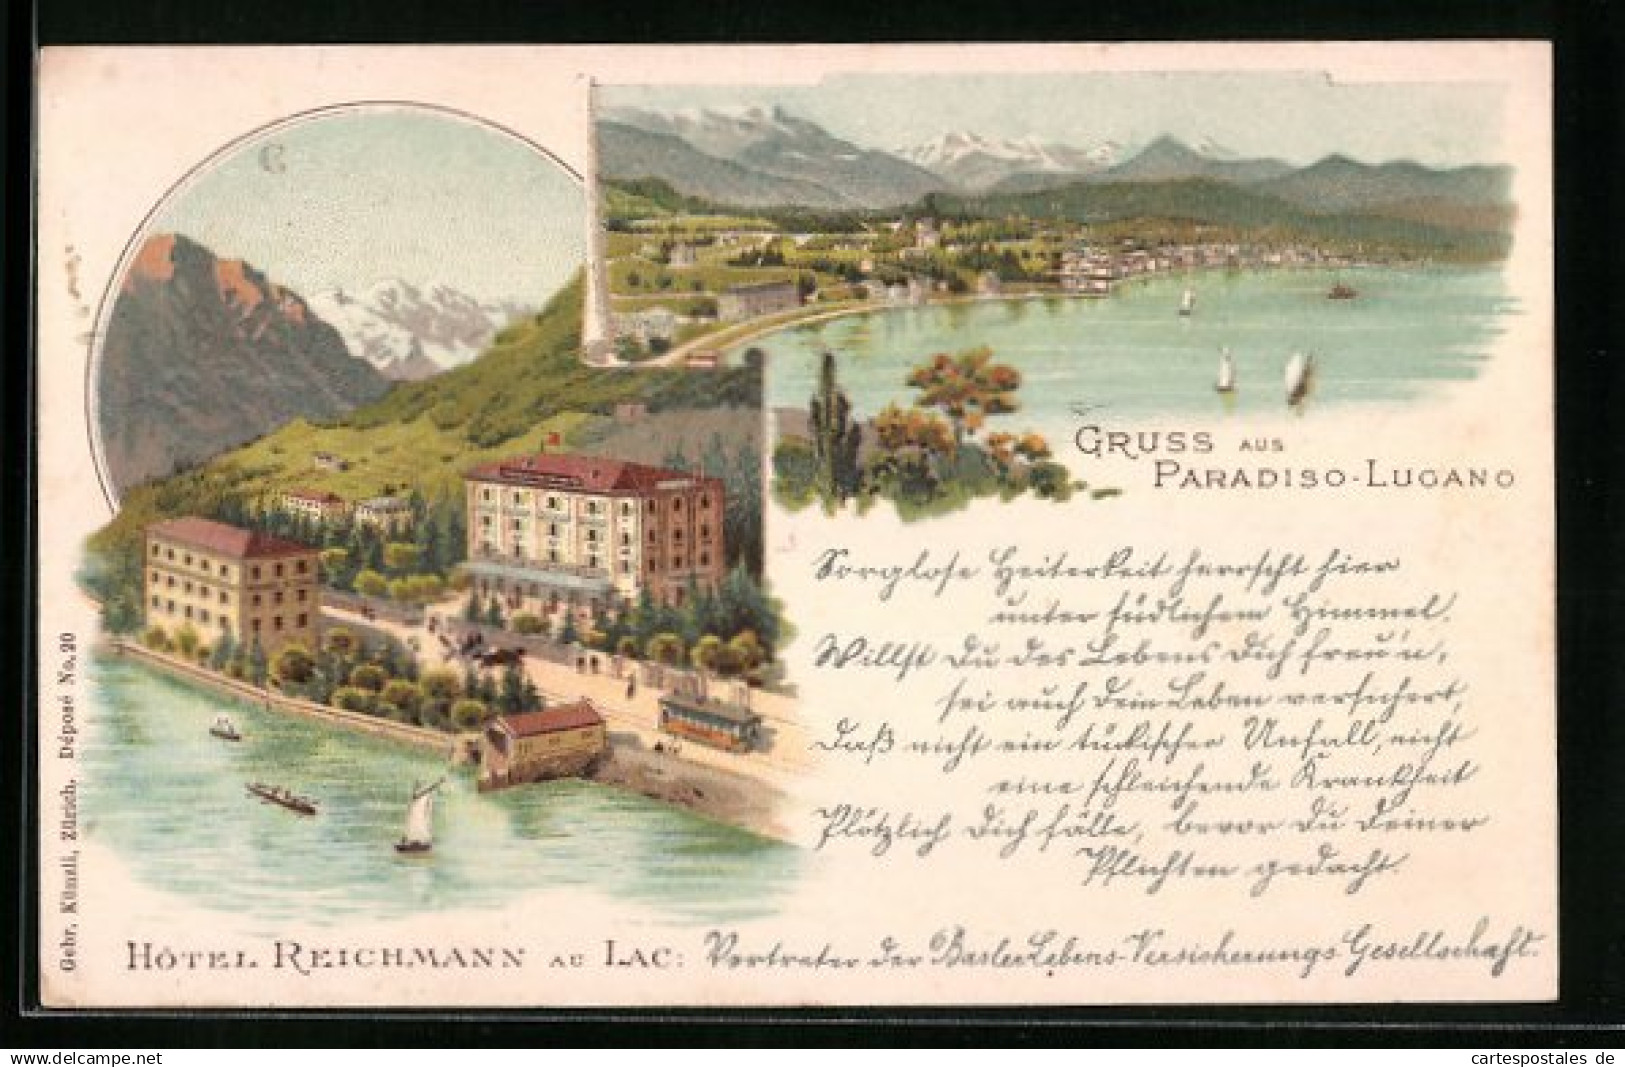 GRUSS AUS
PARADISO-LUGANO
Sorglose Heiterkeit herrscht hier
unter südlichem Himmel.
Willst Du des Lebens Dich freu'n,
sei auch Dein Leben versichert,
Daß nicht ein tückischer Unfall, nicht
eine schleichende Krankheit
Plötzlich Dich fälle, bevor Du Deiner
Pflichten gedacht.
HÔTEL REICHMANN AU LAC: Vertreter der Basler Lebens-Versicherungs Gesellschaft.
Gebr. Künzli, Zürich. Déposé No. 20
cartespostales de